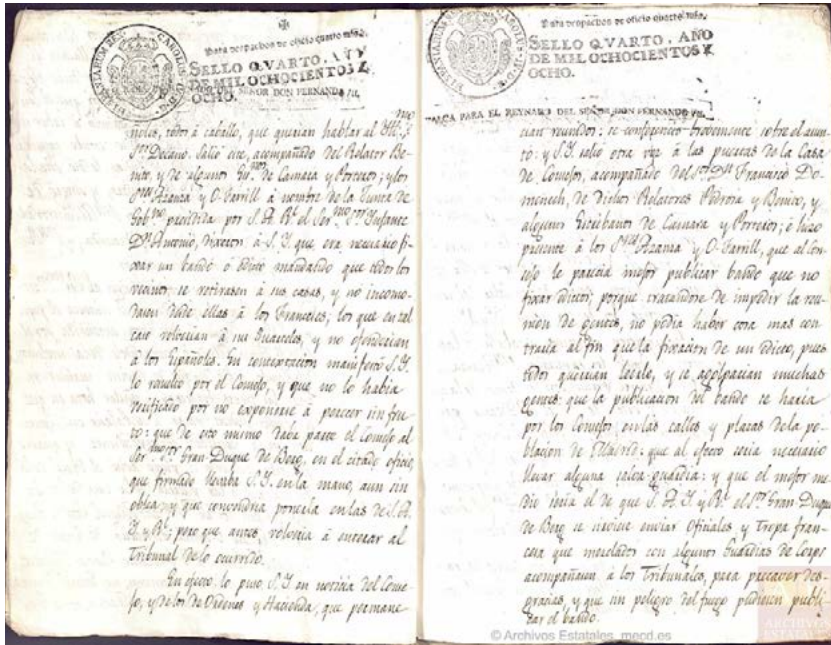 Para despachos de oficio quatro mrs.
SELLO QVARTO. AÑO
DE MIL OCHOCIENTOS Y
OCHO.
SEÑOR DON FERNANDO VII.
ñoles, todos á caballo, que querian hablar al Yll.mo
S.or Decano. Salió este, acompañado del Relator Be-
nito, y de algunos de Camara y Porteros; y los
S.res Azanza y O-Farrill á nombre de la Junta de
Gob.no presidida por S. A. R.l el Ser.mo S.or Infante
D.n Antonio, dixeron á S. I. que era necesario fi-
xar un bando ó edicto mandando que todos los
vecinos se retirasen á sus casas, y no incomo-
dasen desde ellas á los Franceses; los que en tal
caso volverian á sus Quarteles, y no ofenderian
á los Españoles. En contextacion manifestó S. I.
lo resuelto por el Consejo, y que no lo habia
verificado por no exponerse á perecer sin fru-
to: que de esto mismo daba parte el Consejo al
Ser.mo S.or Gran-Duque de Berg, en el citado oficio,
que firmado llevaba S. I. en la mano, aun sin
oblea; y que convendria ponerla en las de S. A.
I. y R.l; pero que antes, volveria á enterar al
Tribunal de lo ocurrido.
En efecto lo puso S. I. en noticia del Conse-
jo, y de los de Ordenes y Hacienda, que permane-
Para despachos de oficio quatro mrs.
SELLO QVARTO. AÑO
DE MIL OCHOCIENTOS Y
OCHO.
VALGA PARA EL REYNADO DEL SEÑOR DON FERNANDO VII.
cian reunidos: se conferenció brevemente sobre el asun-
to: y S. I. salió otra vez á las puertas de la Casa
de Consejos, acompañado del S.or D.n Francisco Do-
menech, de dichos Relatores Pedrosa y Benito, y
algunos Escribanos de Camara y Porteros; é hizo
presente á los S.res Azanza y O-Farrill, que al Con-
sejo le parecia mejor publicar bando que no
fixar edictos; porque tratandose de impedir la reu-
nion de gentes, no podia haber cosa mas con
traria al fin que la fixacion de un edicto, pues
todos querian leerle, y se agolparian muchas
gentes: que la publicacion del bando se haria
por los Consejos en las calles y plazas de la po-
blacion de Madrid: que al efecto seria necesario
llevar alguna salva-guardia; y que el mejor me
dio seria el de que S. A. I. y R.l el S.or Gran-Duque
de Berg se sirviese enviar Oficiales y Tropa fran-
cesa que mezclados con algunos Guardias de Corps
acompañasen á los Tribunales, para precaver des-
gracias, y que sin peligro del fuego pudiesen publi-
car el bando.
© Archivos Estatales, mecd.es
ARCHIVOS
ESTATALES